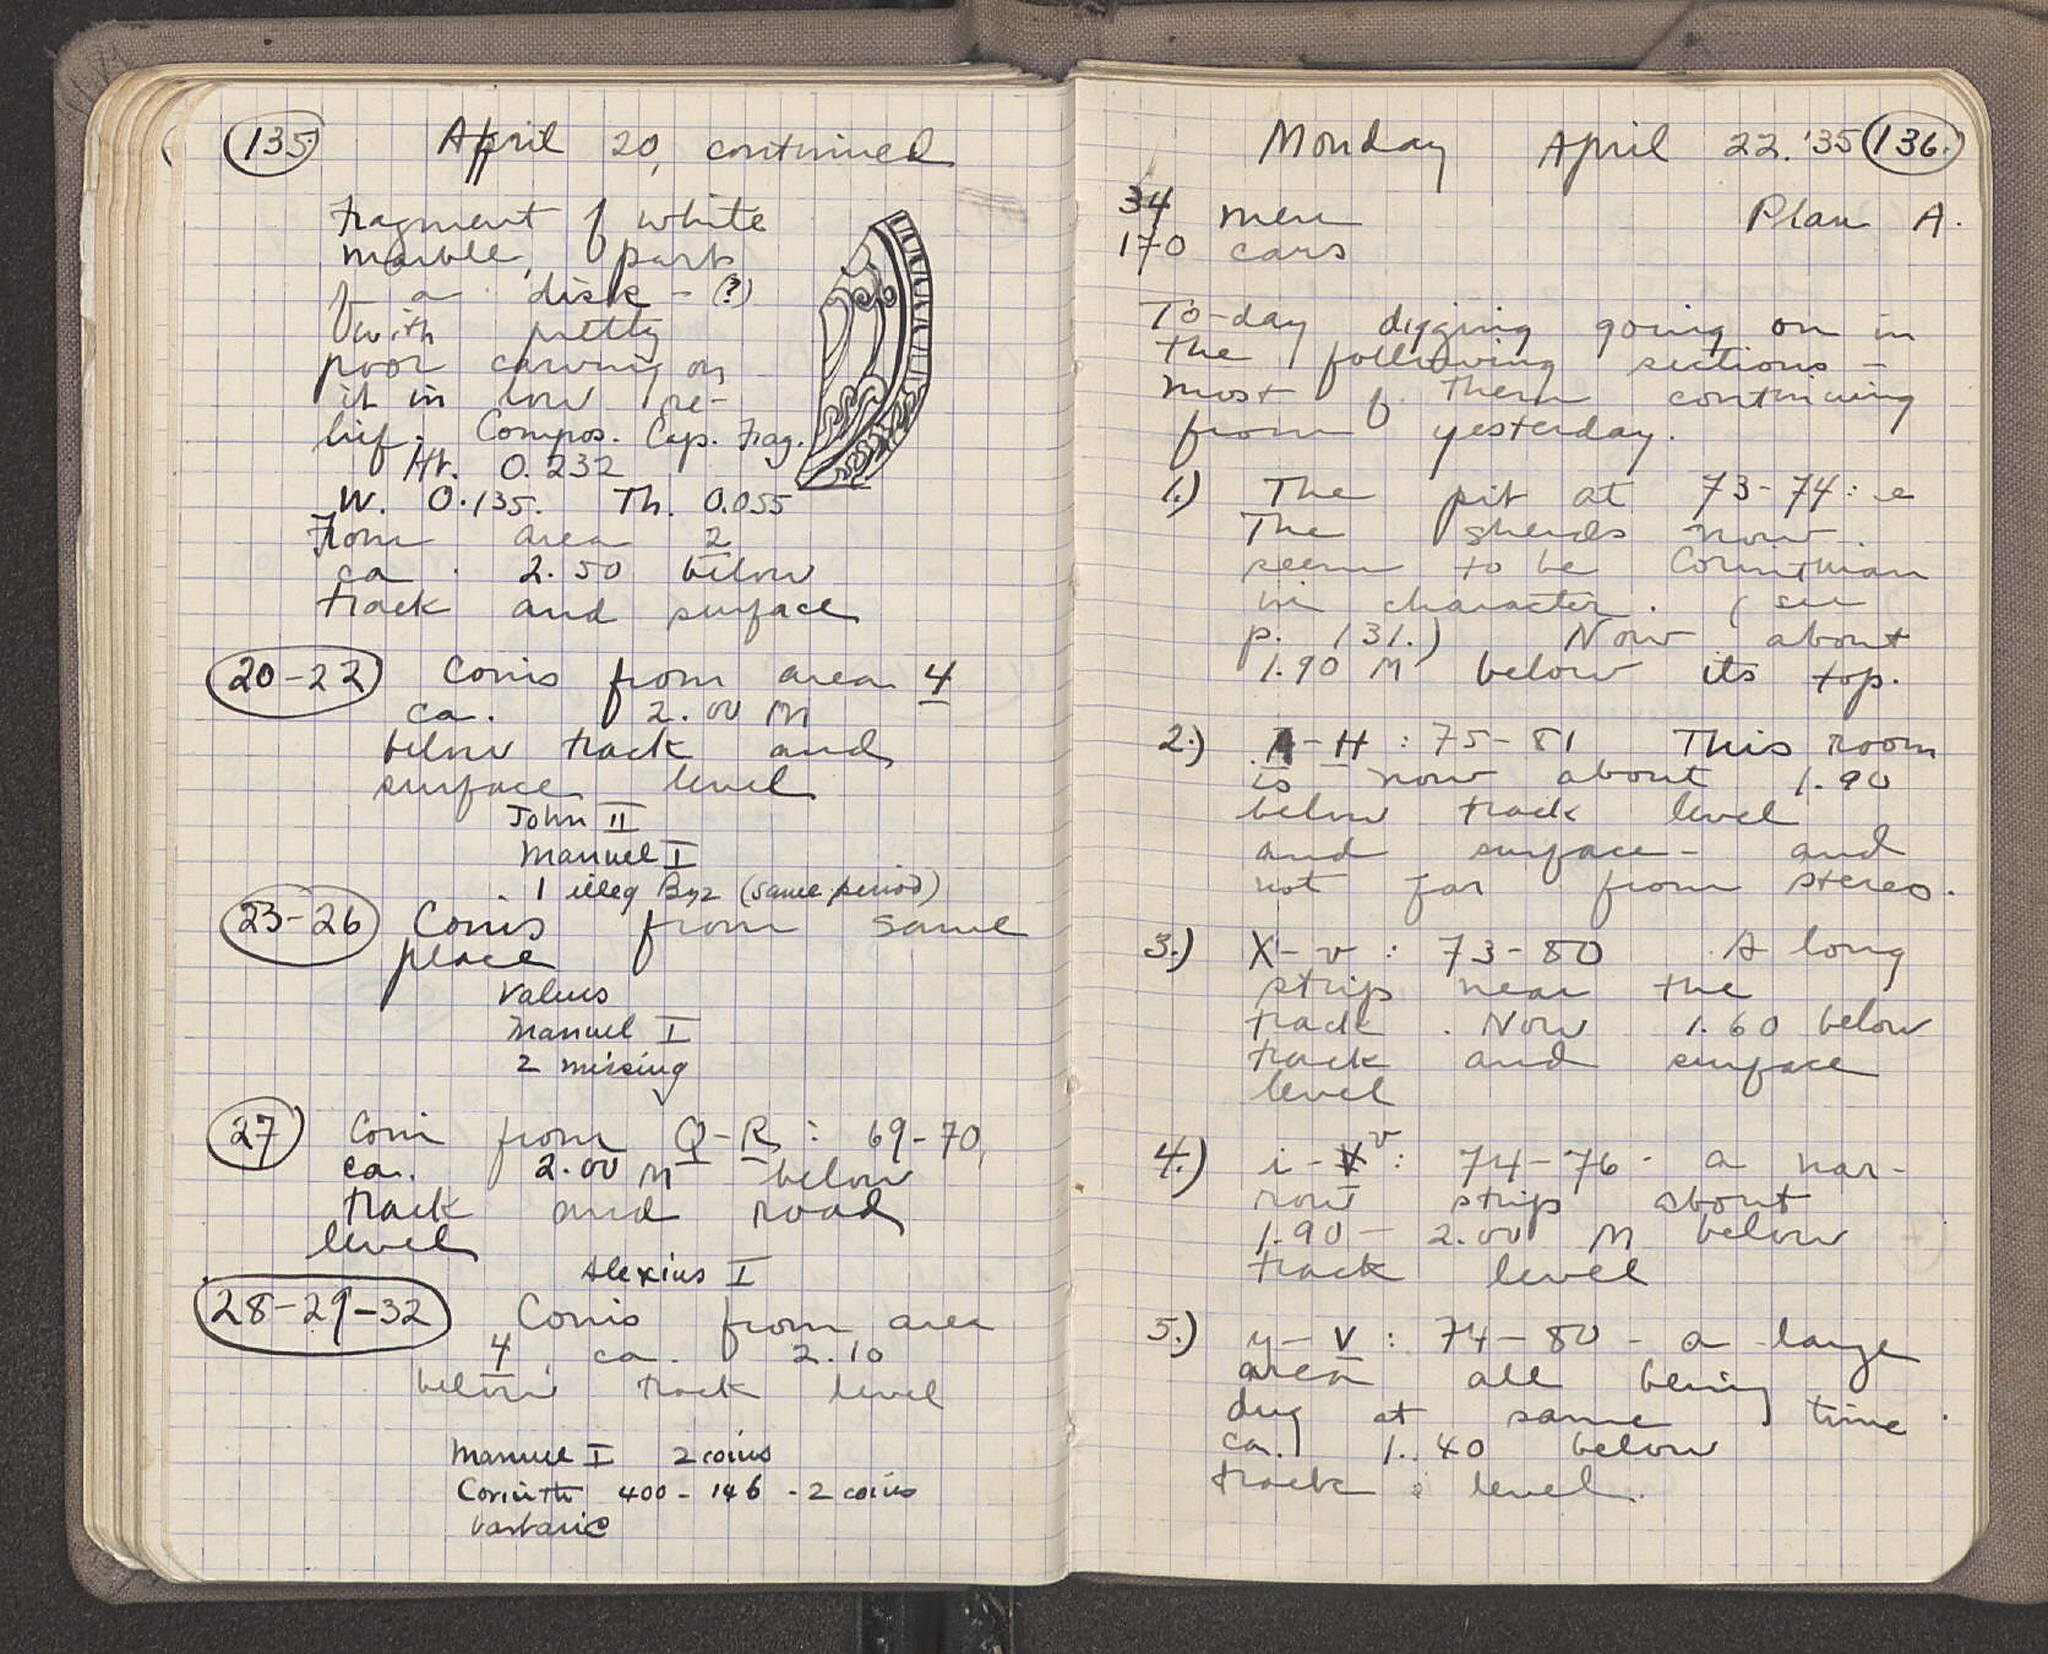 135
April 20, continued
Fragment of white
marble, part
of a disk - (?)
with pretty
poor carving on
it in low re-
lief. Compos. Cap. Frag.
Ht. 0.232
W. 0.135. Th. 0.055
From area 2
ca. 2.50 below
track and surface
20-22 Coins from area 4
ca. 2.00 M
below track and
surface level
John II
Manuel I
1 illeg Byz (same period)
23-26 Coins from same
place
Valens
Manuel I
2 missing
27 Coin from Q-R: 69-70,
ca. 2.00 M below
track and road
level
Alexius I
28-29-32 Coins from area
4, ca. 2.10
below track level
Manuel I 2 coins
Corinth 400-146 - 2 coins
barbaric
Monday April 22. '35 136.
34 men Plan A.
170 cars
To-day digging going on in
the following sections -
most of them continuing
from yesterday.
1.) The pit at 73-74: e
The sherds now
seem to be Corinthian
in character. (see
p. 131.) Now about
1.90 M below its top.
2.) A-H: 75-81 This room
is now about 1.90
below track level
and surface - and
not far from stereo.
3.) X-v: 73-80 A long
strip near the
track. Now 1.60 below
track and surface
level
4.) i-v: 74-76 - a nar-
row strip about
1.90 - 2.00 M below
track level
5.) y-V: 74-80 - a large
area all being
dug at same time
ca. 1.40 below
track level.